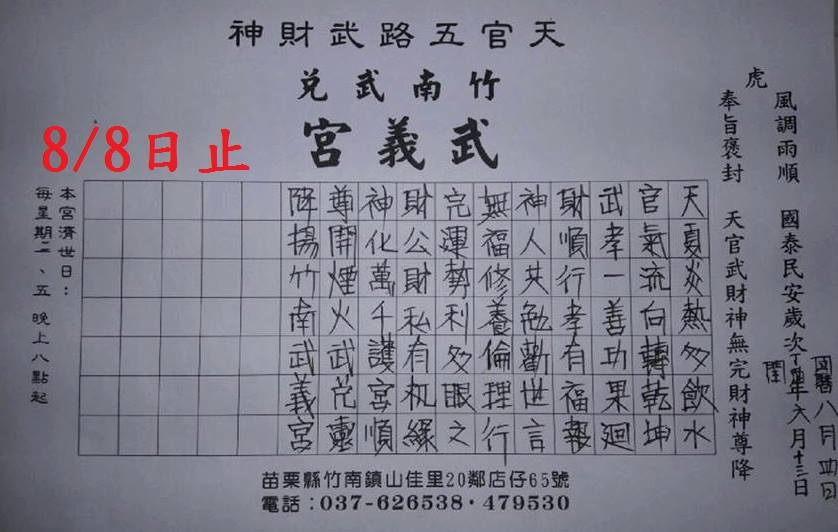 天官五路武財神
竹南武兌
武義宮
8/8日止
虎
風調雨順 國泰民安歲次丁酉年閏六月十三日
國曆八月四日
奉旨褒封 天官武財神無完財神尊降
天夏炎熱多飲水
官氣流向轉乾坤
武孝一善功果迴
財順行孝有福報
神人共勉勸世言
無福修養倫理行
完運勢利多眼之
財公財私有机緣
神化萬千護宮順
尊開煙火武兌靈
降揚竹南武義宮
本宮濟世日：
每星期二、五 晚上八點起
苗栗縣竹南鎮山佳里20鄰店仔65號
電話：037-626538·479530